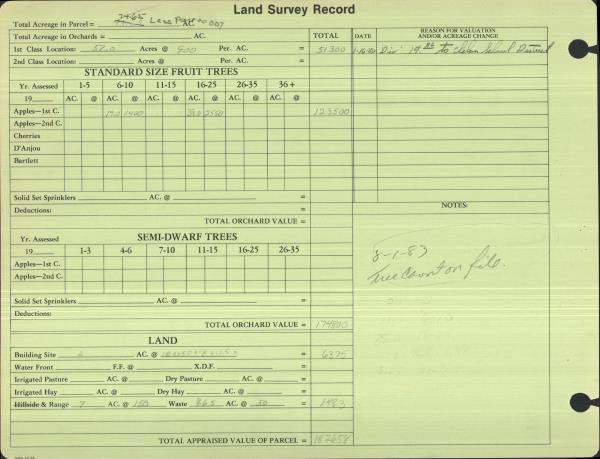 Land Survey Record
Total Acreage in Parcel = 74.65 Less Part to 007 AC.
Total Acreage in Orchards = AC. TOTAL DATE REASON FOR VALUATION AND/OR ACREAGE CHANGE
1st Class Location: 57.0 Acres @ 900 Per. AC. = 51300 Div. 19 to Chelan School District
2nd Class Location: Acres @ Per. AC. =
STANDARD SIZE FRUIT TREES
Yr. Assessed 1-5 6-10 11-15 16-25 26-35 36+
19 AC. @ AC. @ AC. @ AC. @ AC. @ AC. @
Apples—1st C. 1400 2550 123500
Apples—2nd C.
Cherries
D'Anjou
Bartlett
Solid Set Sprinklers AC. @ =
Deductions: =
TOTAL ORCHARD VALUE =
NOTES:
SEMI-DWARF TREES
Yr. Assessed 1-3 4-6 7-10 11-15 16-25 26-35
19 AC. @ AC. @ AC. @ AC. @ AC. @ AC. @
8-1-83
Apples—1st C.
Tree Count on file.
Apples—2nd C.
Solid Set Sprinklers AC. @ =
Deductions:
TOTAL ORCHARD VALUE = 174800
LAND
Building Site 2 AC. @ = 6375
Water Front F.F. @ X.D.F. =
Irrigated Pasture AC. @ Dry Pasture AC. @ =
Irrigated Hay AC. @ Dry Hay AC. @ =
Hillside & Range 7 AC. @ 150 Waste 8.65 AC. @ 50 = 1483
TOTAL APPRAISED VALUE OF PARCEL = 182658